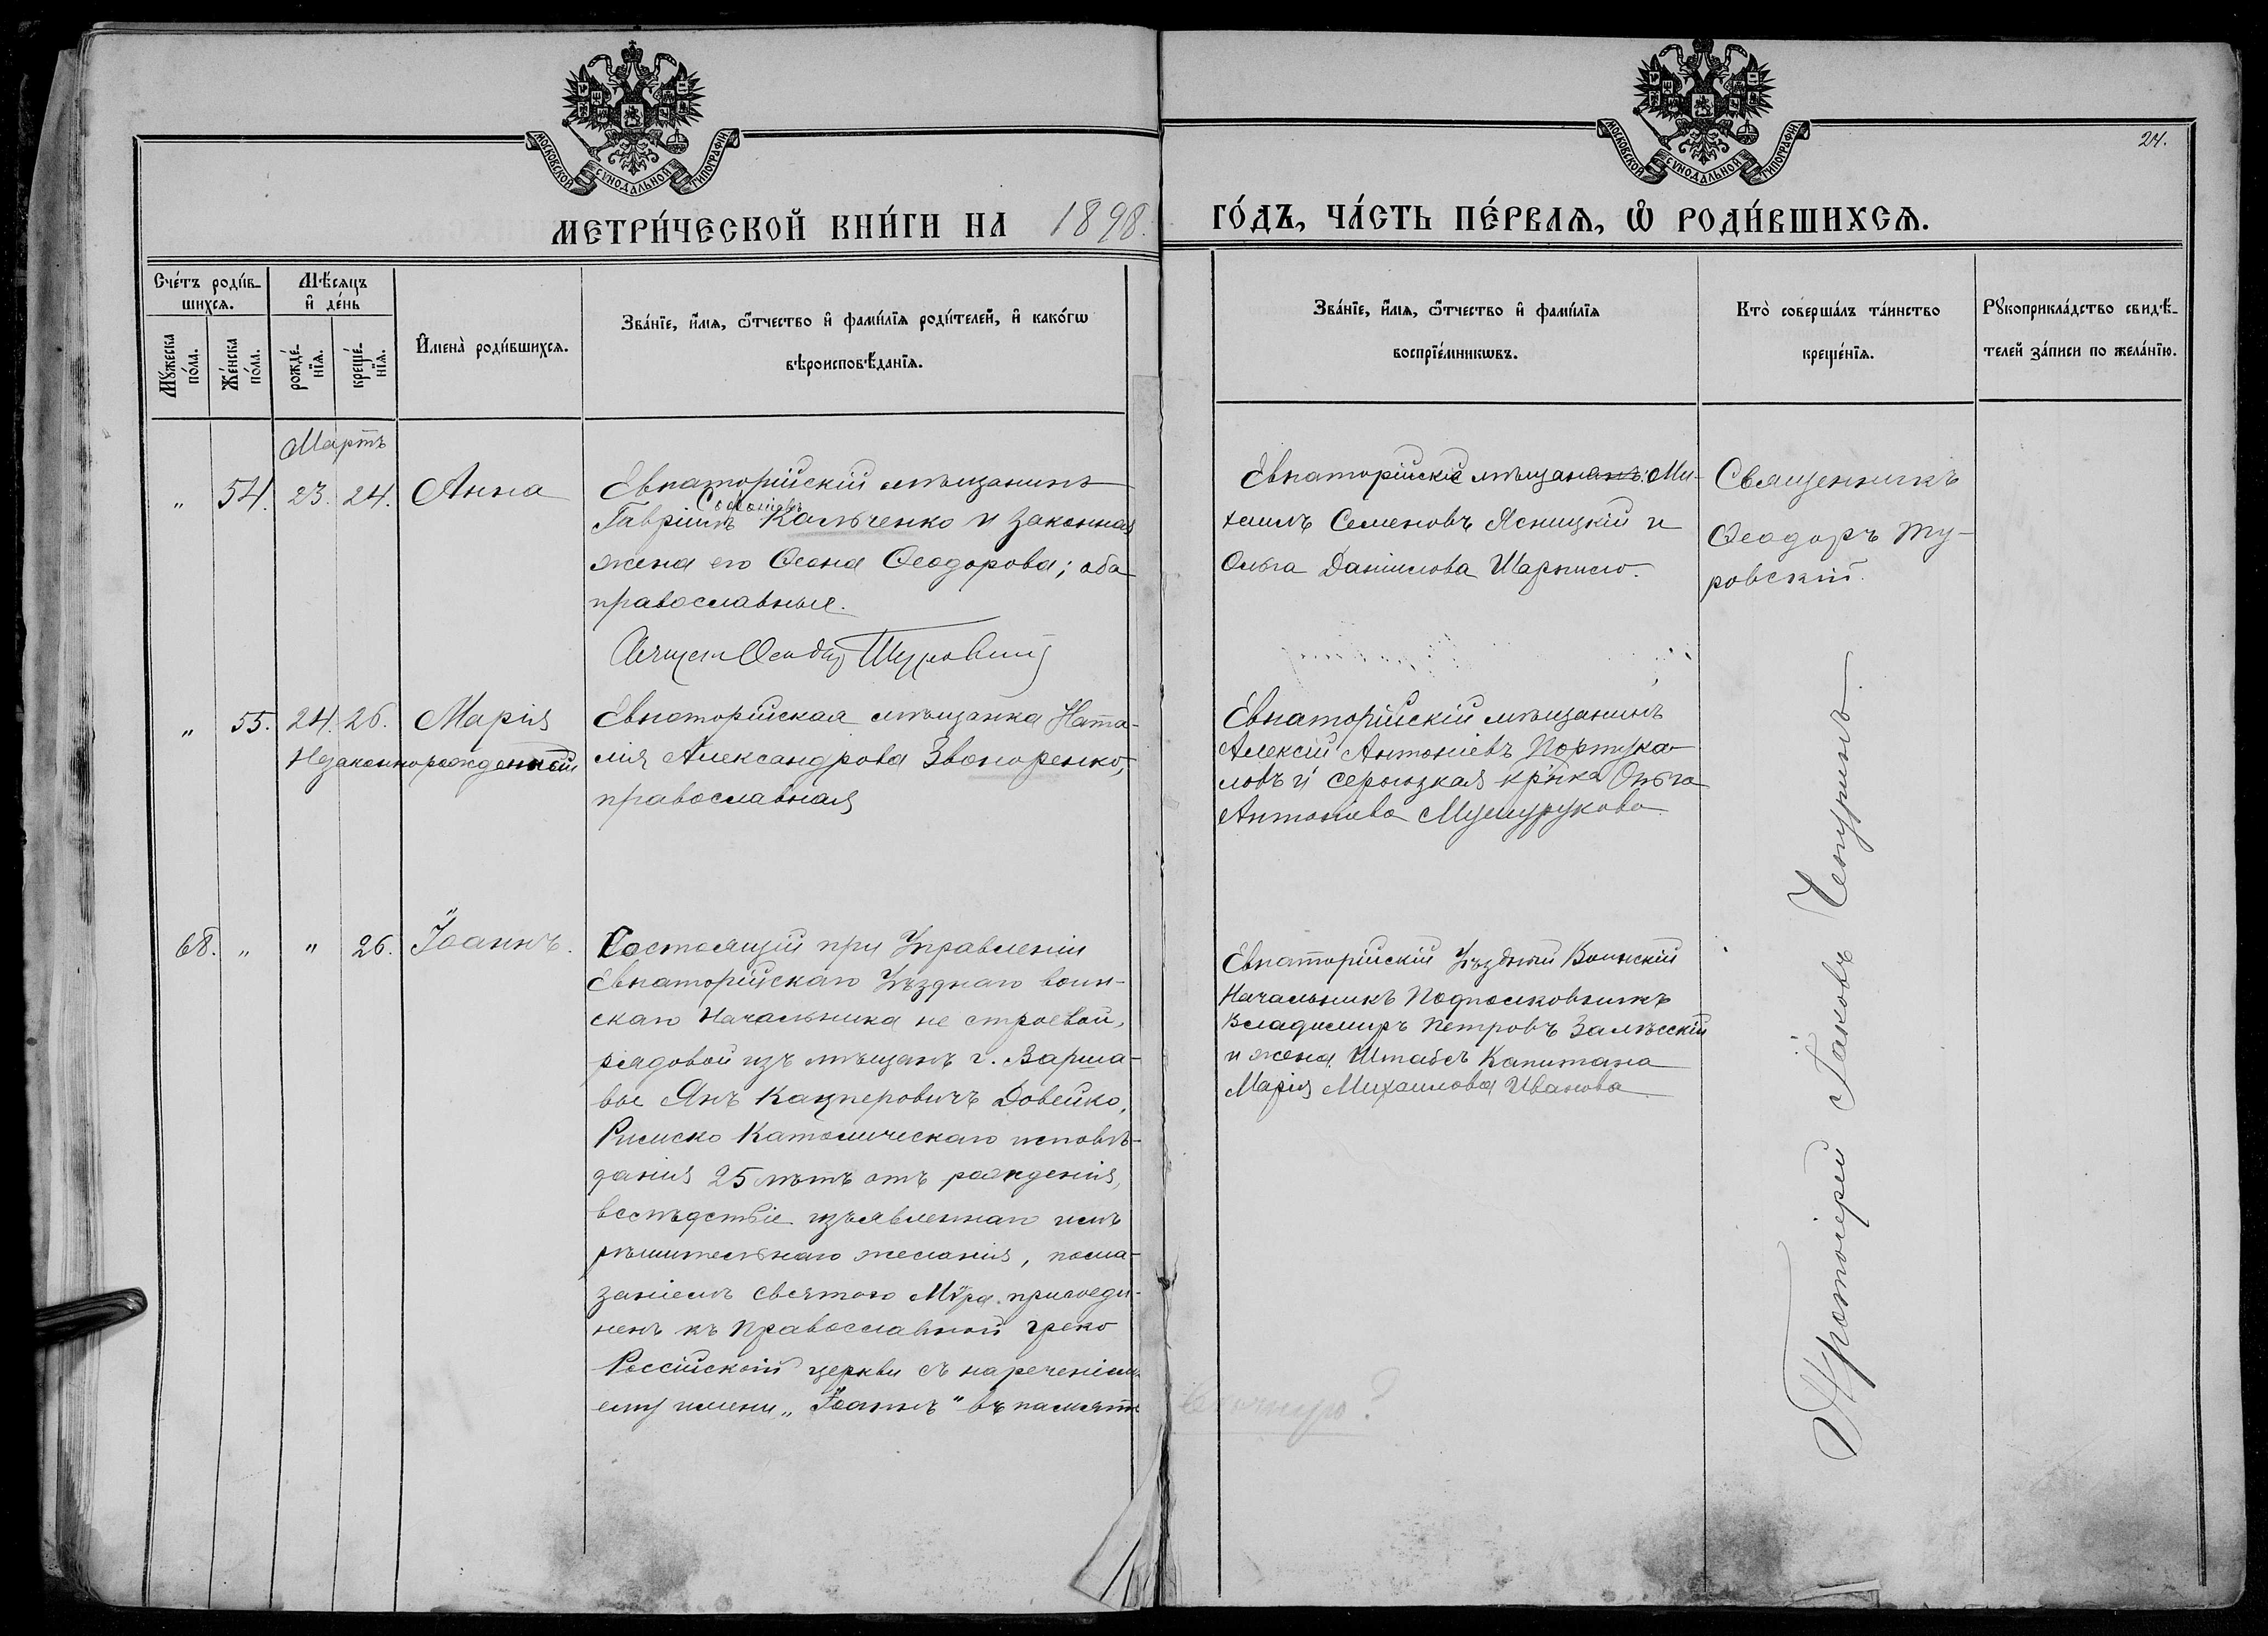 МОСКОВСКОЙ СУНОДАЛЬНОЙ ТИПОГРАФІИ
МОСКОВСКОЙ СУНОДАЛЬНОЙ ТИПОГРАФІИ
24.
МЕТРИ́ЧЕСКОЙ КНИ́ГИ НА 1898.
ГО́ДЪ, ЧА́СТЬ ПЕ́РВАѦ, Ѡ РОДИ́ВШИХСѦ.
Сче́тъ роди́в-
шихсѧ.
Мѣ́сѧцъ
и де́нь
Мꙋ́жеска
по́ла.
Же́нска
по́ла.
рожде́-
нїѧ.
креще́-
нїѧ.
Имена̀ роди́вшихсѧ.
Зва́нїе, и́мѧ, ѻ́тчество и фами́лїѧ роди́телей, и како́гѡ
вѣроисповѣ́данїѧ.
Зва́нїе, и́мѧ, ѻ́тчество и фами́лїѧ
воспрїе́мникѡвъ.
Кто̀ соверша́лъ та́инство
креще́нїѧ.
Рꙋкоприкла́дство свидѣ́-
телей за́писи по жела́нїю.
Мартъ
„ 54. 23. 24. Анна
Евпаторійскій мѣщанинъ
Гавріилъ Кальченко и законная
жена его Ѳеодорова; оба
православные.
Евпаторійскіе мѣщане Ми-
хаилъ Семеновъ Ясницкій и
Ольга Даніилова
Священникъ
Ѳеодоръ Ту-
ровскій.
Туровскій
„ 55. 24. 26. Марія
Незаконнорожденная
Евпаторійская мѣщанка Ната-
лія Александрова Звоноренко,
православная
Евпаторійскій мѣщанинъ
Алексій Антоніевъ Португа-
ловъ и кр'нка Ольга
Антоніева
68. „ „ 26. Іоаннъ.
Состоящій при Управленіи
Евпаторійскаго Уѣзднаго воин-
скаго Начальника не строевой,
рядовой изъ мѣщанъ г. Варша-
вы Янъ Кацперовичъ Довейко,
Римско Католическаго исповѣ-
данія 25 лѣтъ отъ рожденія,
вслѣдствіе изъявленнаго имъ
рѣшительнаго желанія, пома-
заніемъ святого Мѵра присоеди-
ненъ къ Православной греко
Россійской церкви съ нареченіемъ
ему имени „Іоаннъ" въ память
Евпаторійскій Уѣздный Воинскій
Начальникъ Подполковникъ
Владимиръ Петровъ Залѣсскій
и жена Штабсъ Капитана
Марія Михаилова Иванова
Протоіерей Іаковъ Чепуринъ.